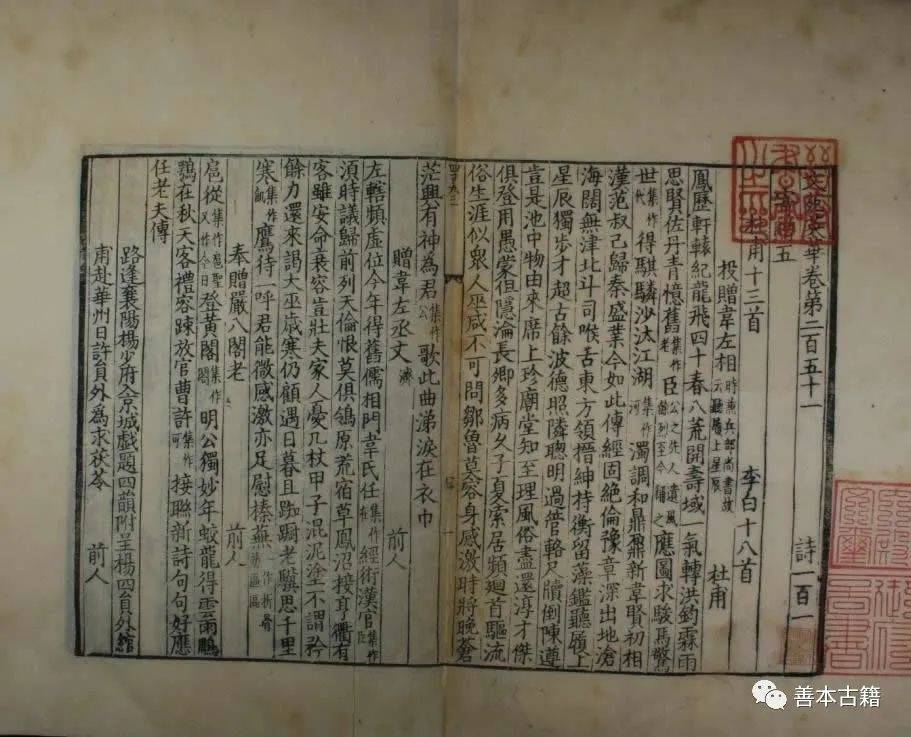 文苑英華卷第二百五十一
詩一百一
五
杜甫十三首 李白十八首
投贈韋左相 時兼兵部尚書故云聽履上星辰 杜甫
鳳歷軒轅紀龍飛四十春八荒開壽域一氣轉洪鈞霖雨
思賢佐丹青憶舊 集作老 臣 公之先人遺風餘烈至今稱之 應圖求駿馬驚
世 集作代 得騏驎沙汰江湖 集作河 濁調和鼎鼐新韋賢初相
漢范叔已歸秦盛業今如此傳經固絕倫豫章深出地滄
海闊無津北斗司喉舌東方領搢紳持衡留藻鑑聽履上
星辰獨步才超古餘波德照隣聰明過管輅尺牘倒陳遵
豈是池中物由來席上珍廟堂知至理風俗盡還淳才傑
俱登用愚蒙但隱淪長卿多病久子夏索居頻廻首驅流
俗生涯似衆人巫咸不可問鄒魯莫容身感激時將晚蒼
茫興有神為君 集作公 歌此曲涕淚在衣巾
贈韋左丞丈 濟 前人
左轄頻虛位今年得舊儒相門韋氏任 集作在 經術漢官 集作臣
須時議歸前列天倫恨莫俱鴒原荒宿草鳳沼接亨衢有
客雖安命衰容豈壯夫家人憂几杖甲子混泥塗不謂矜
餘力還來謁大巫歲寒仍顧遇日暮且踟躕老驥思千里
飢鷹待一呼君能微感激亦足慰榛蕪
奉贈嚴八閣老 前人
扈從 集作扈聖又作今日 登黃閣 集作閤 明公獨妙年蛟龍得雲雨鵬
鶚在秋天客禮容踈放官曹許 集作可 接聯新詩句句好應
任老夫傳
路逢襄陽楊少府入京城戲題四韻附呈楊四員外綰
甫赴華州日許員外為求茯苓 前人
善本古籍